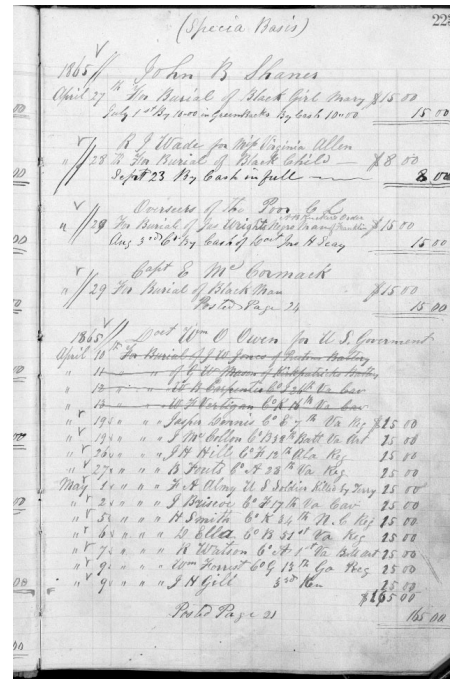 (Specia Basis) 223
1865 John B Shaner
April 27th For Burial of Black Girl Mary $15.00
July 1st By 10.00 in Green Backs By Cash 10.00 15 00
R J Wade for Miss Virginia Allen
" 28 To For Burial of Black Child — $8 00
Sept 23 By Cash in full — 8 00
Overseers of The Poor C L
" 29 For Burial of Jas Wright Negro man of Franklin $15 00
Aug 3rd Cr By Cash of Wm Jno H Seay 15 00
Capt E McCormack
" 29 For Burial of Black Man $15 00
Posted Page 24 15 00
1865 Doct Wm O. Owen for U S Goverment
April 10th For Burial of J W Jones of Battery
" 11 " of G W Mason of Kirkpatricks Batty
" 12 " " " W B Carpenter Co I 26th Va Cav
" 13 " " " W F Vertigan Co K 16th Va Cav
" 19 " " " Jasper Dennis Co E 7th Va Reg $15 00
" 19 " " " J McCollon Co B 38th Batt Va Art 15 00
" 26 " " " J H Hill Co F 12th Ala Reg 15 00
" 27 " " " B Fouts Co A 28th Va Reg 15 00
May 1 " " " F A Almy U S Soldier Killed by Terry 15 00
" 2 " " " J Briscoe Co F 17th Va Cav 15 00
" 5 " " " H Smith Co K 34th N.C Reg 15 00
" 6 " " " D Ella Co B 31st Va Reg 15 00
" 7 " " " R Watson Co A 1st Va Batt Art 15 00
" 9 " " " Wm Forrist Co G 13th Ga Reg 15 00
" 9 " " " J H Gill 3rd 15 00
$165 00
Posted Page 21 165 00